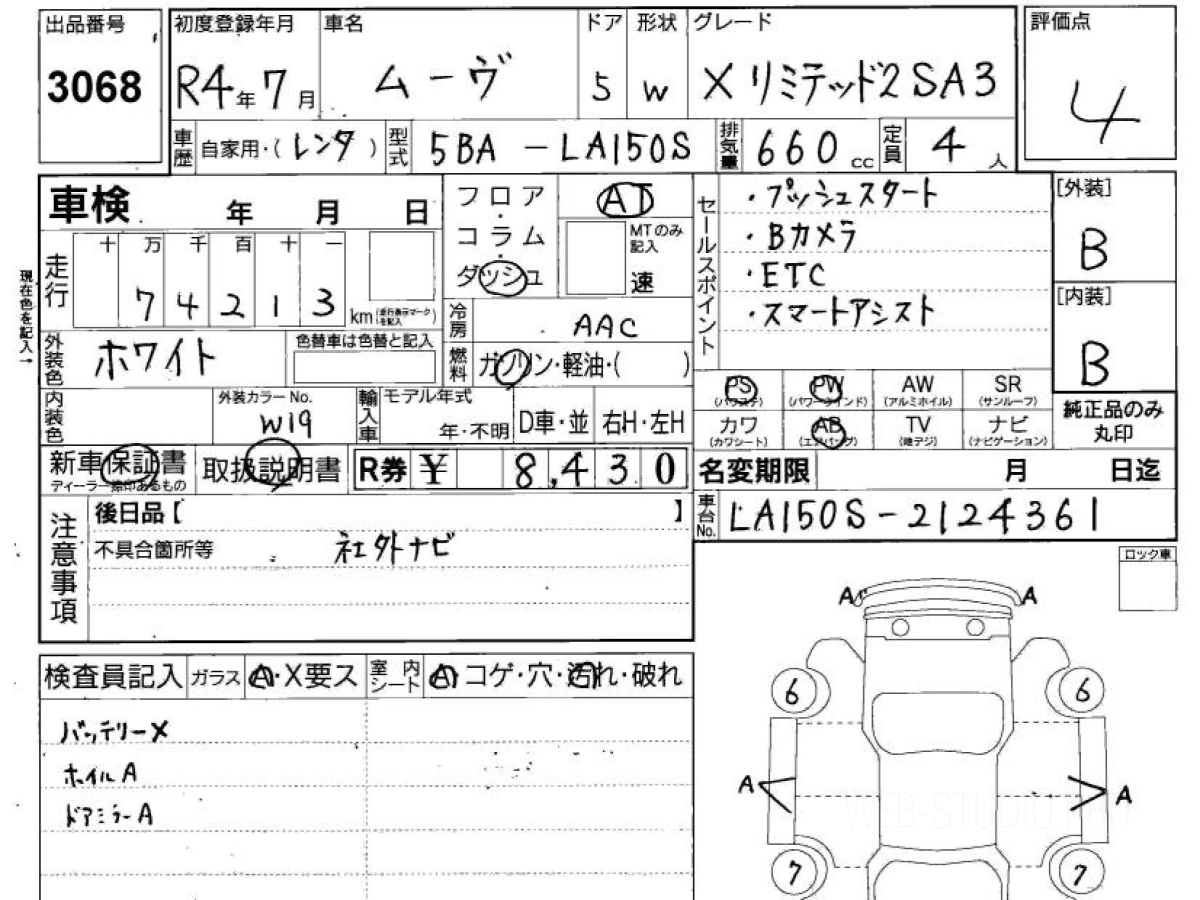 出品番号
3068
初度登録年月
R4年7月
車名
ムーヴ
ドア
5
形状
W
グレード
Xリミテッド2SA3
評価点
4
車歴
自家用・(レンタ)
型式
5BA-LA150S
排気量
660cc
定員
4人
車検 年 月 日
フロア・コラム・ダッシュ
AT
MTのみ記入
速
セールスポイント
・プッシュスタート
・Bカメラ
・ETC
・スマートアシスト
[外装]
B
[内装]
B
現在色を記入→
走行
十 万 千 百 十 一
7 4 2 1 3
km(走行表示マークを記入)
冷房
AAC
外装色
ホワイト
色替車は色替と記入
燃料
ガソリン・軽油・( )
PS
(パワステ)
PW
(パワーウインド)
AW
(アルミホイル)
SR
(サンルーフ)
カワ
(カワシート)
AB
(エアバッグ)
TV
(地デジ)
ナビ
(ナビゲーション)
純正品のみ丸印
内装色
外装カラーNo.
W19
輸入車
モデル年式
年・不明
D車・並
右H・左H
新車保証書
ディーラー捺印あるもの
取扱説明書
R券 ¥ 8,430
名変期限 月 日迄
車台No.
LA150S-2124361
注意事項
後日品【 】
不具合箇所等
社外ナビ
ロック車
検査員記入
ガラス
A・X要ス
室内シート
A・コゲ・穴・汚れ・破れ
バッテリーX
ホイルA
ドアミラーA
A A
6 6
A A
7 7
WEB-STUDIO.PRO